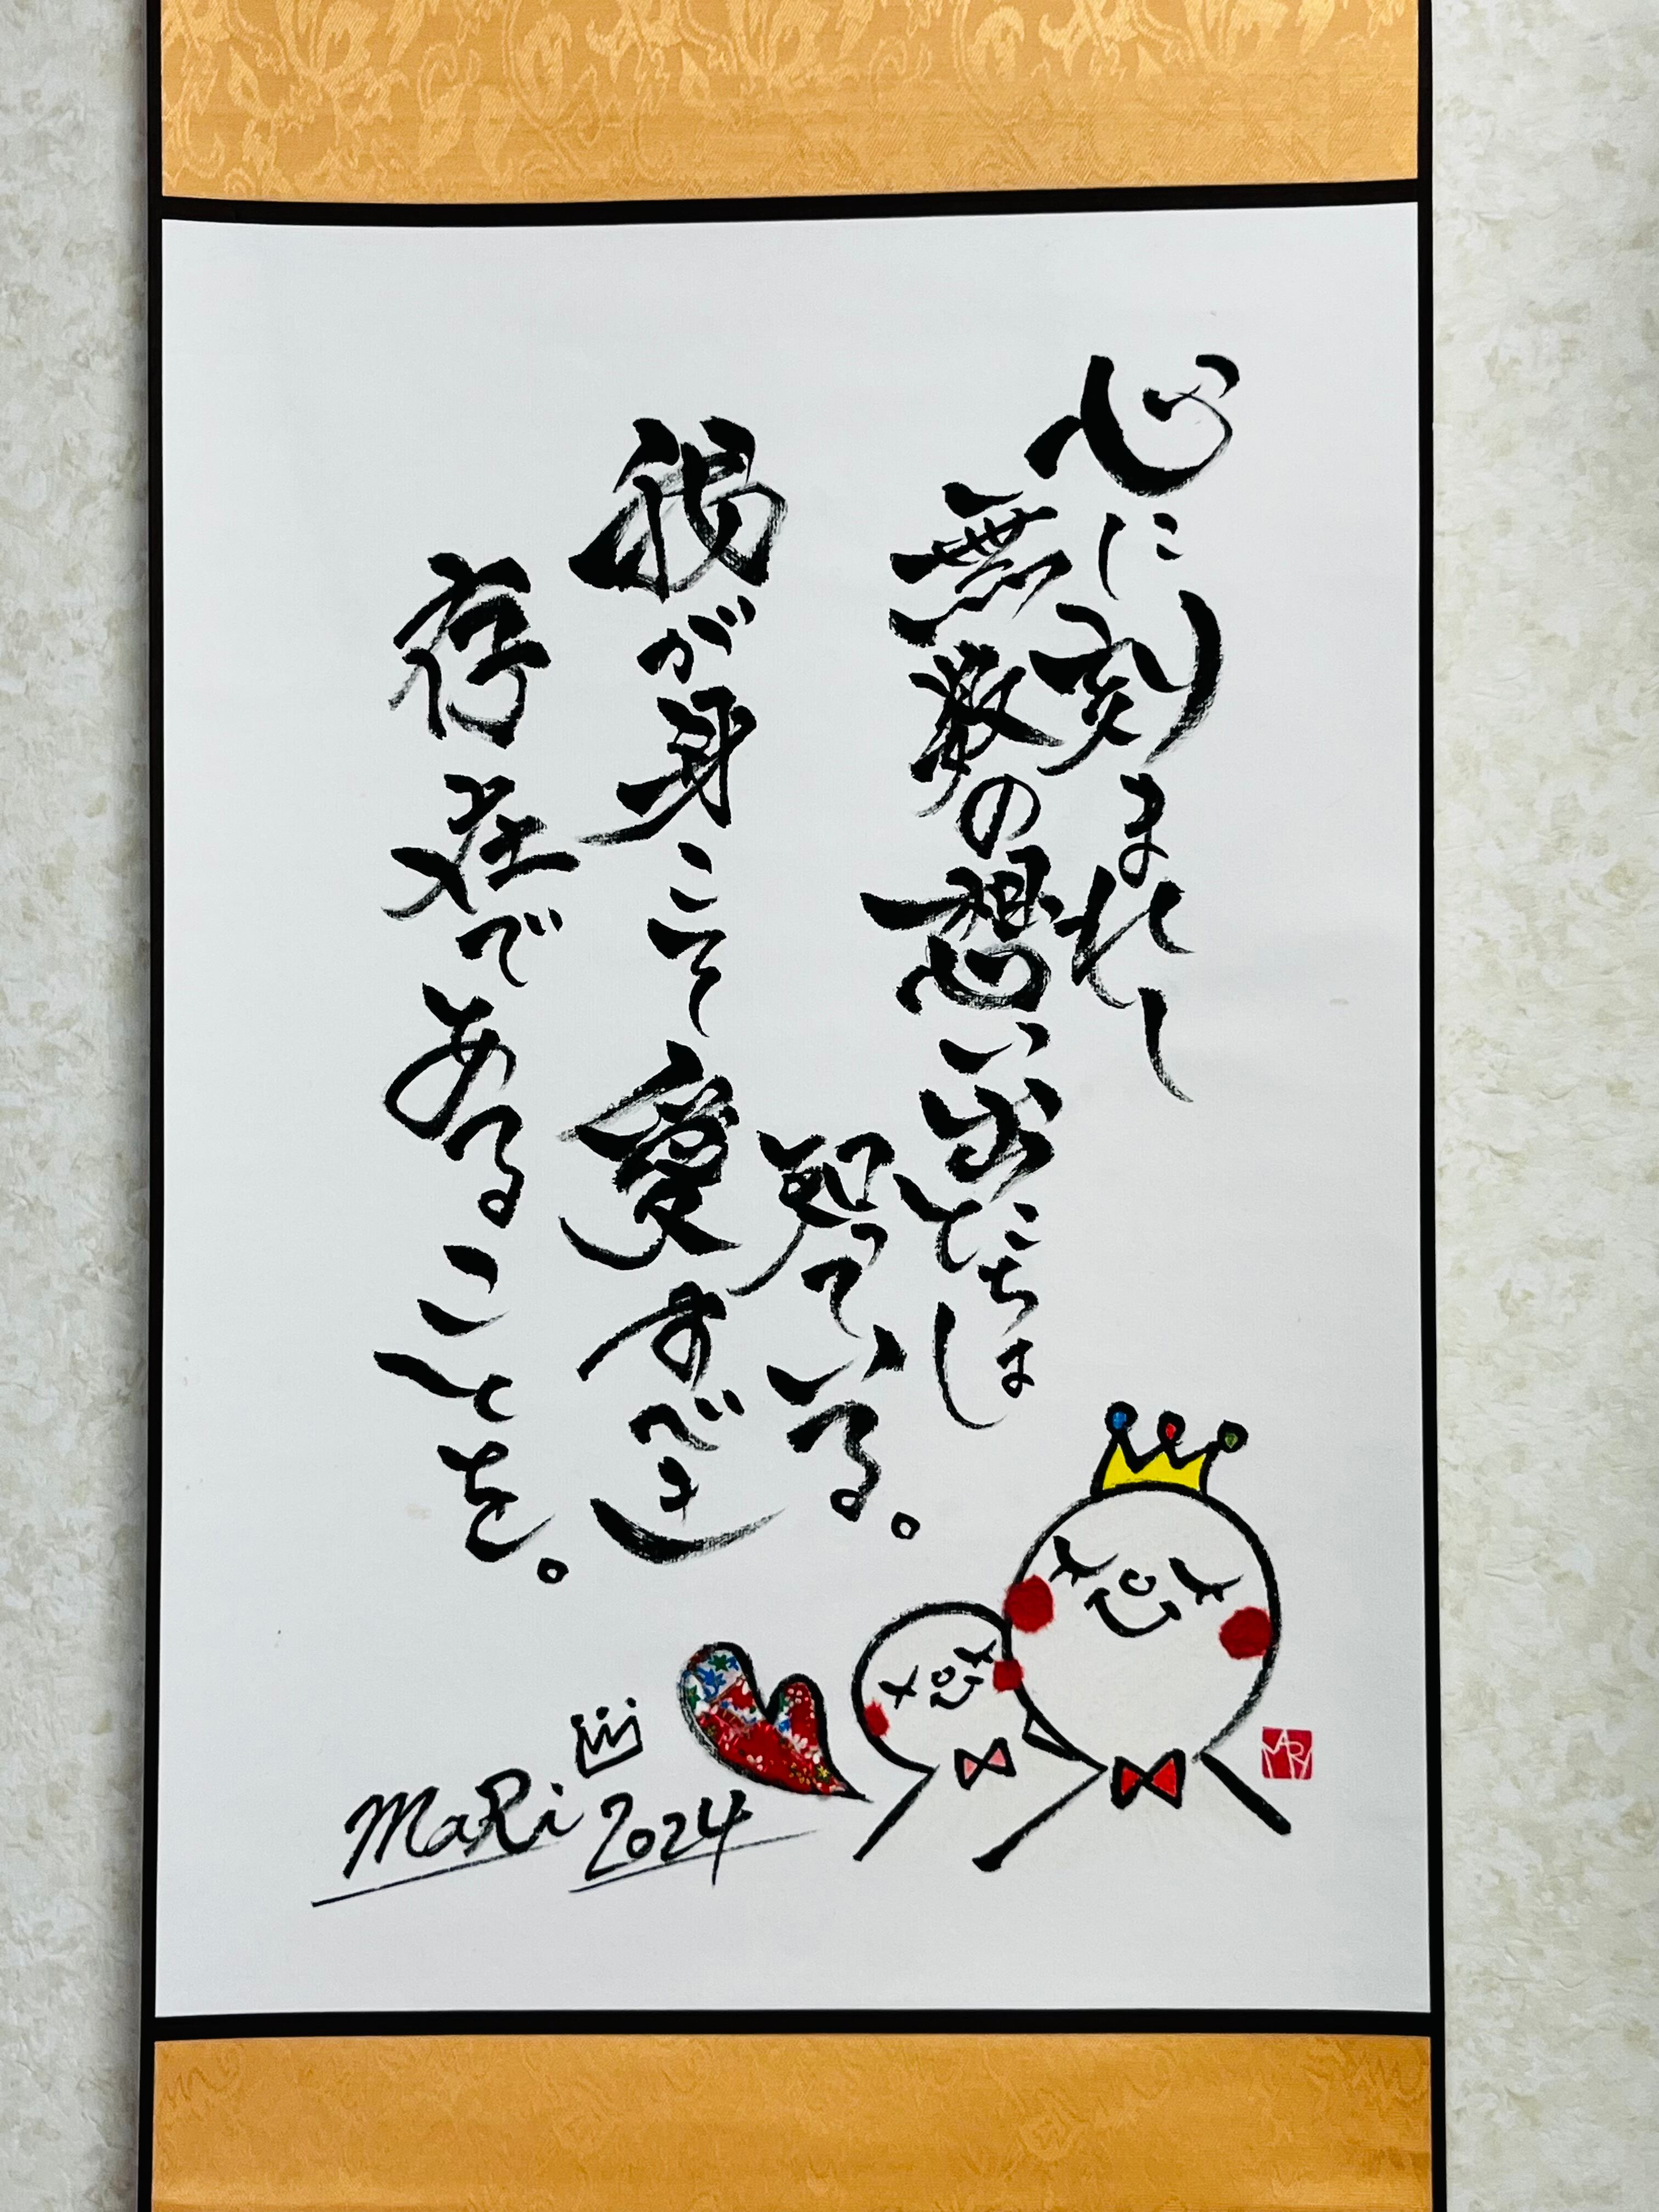 心に刻まれし
無数の想い出たちは
知っている。
我が身こそ愛すべき
存在であることを。
MaRi 2024
MARI